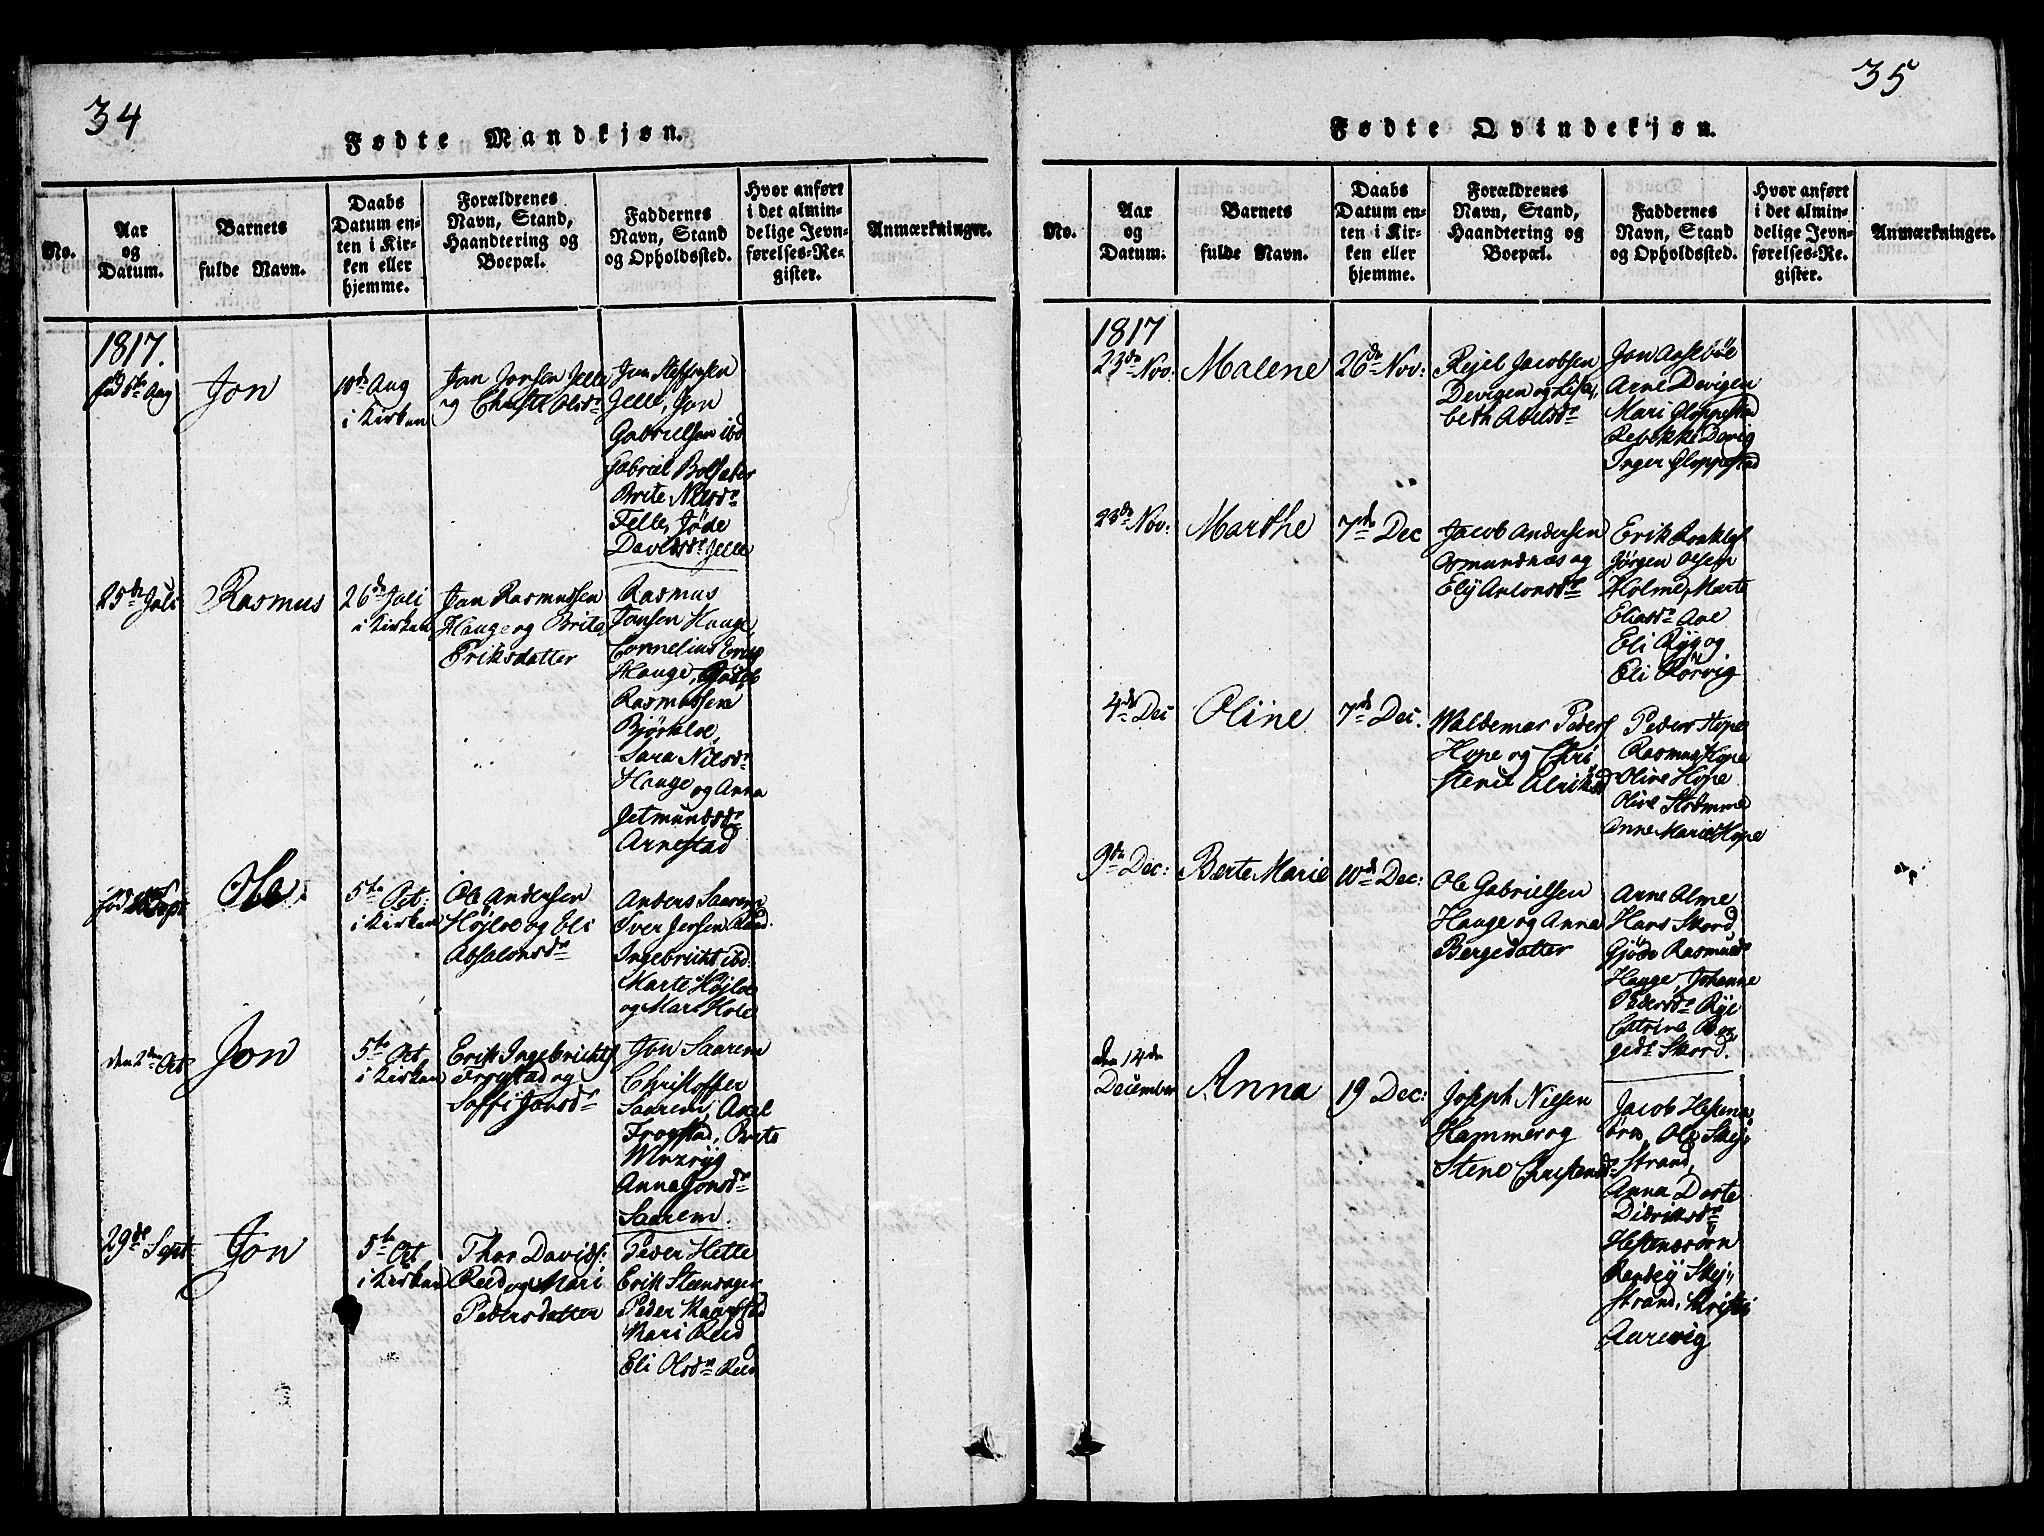 34
Fødte Mandkjøn.
No.
Aar
og
Datum.
Barnets
fulde Navn.
Daabs
Datum en-
ten i Kir-
ken eller
hjemme.
Forældrenes
Navn, Stand,
Haandtering og
Boepæl.
Faddernes
Navn, Stand
og Opholdssted.
Hvor anført
i det almin-
delige Jevn-
førelses-Re-
gister.
Anmærkninger.
1817.
Aug
Jon
10de Aug
i Kirken
Jon Jonsen Jelle
og Christi Olsdr
Jon
Jelle, Jon
Gabrielsen ibd
Gabriel
Brite Nilsdr
Jelle, Jøde
Davidsdr Jelle
25de Juli
Rasmus
26de Juli
i Kirken
Jan Rasmussen
Hauge og Brite
Eriksdatter
Rasmus
Jansen Hauge,
Cornelius
Hauge,
Rasmussen
Bjørkloe,
Sara Nilsdr
Hauge og Anna
Jetmundsdr
Arnestad
fød Sept
Ole.
5te Oct:
i Kirken
Ole Andersen
Højloe og Eli
Absalonsdr
Anders Saarem
Iver Jensen
Ingebricht ibd:
Marte Højloe
og Mari Hole
den 2de Oct
Jon
5te Oct
i Kirken
Erik Ingebrichts
Frogstad og
Soffi Jonsdr
Jon Saarem
Christoffer
Saarem, Axel
Frogstad, Brite
Myxryg
Anna Jonsdr
Saarem.
29de Sept
Jon
5te Oct
i Kirken
Thor Davids:
Reed og Mari
Pedersdatter
Peder Hette
Erik Steensager
Peder
Mari Reed
Eli Olsdr Reed
35
Fødte Qvindekjøn.
No.
Aar
og
Datum.
Barnets
fulde Navn.
Daabs
Datum en-
ten i Kir-
ken eller
hjemme.
Forældrenes
Navn, Stand,
Haandtering og
Boepæl.
Faddernes
Navn, Stand
og Opholdssted.
Hvor anført
i det almin-
delige Jevn-
førelses-Re-
gister.
Anmærkninger.
1817
23de Nov:
Malene
26de Nov:
Rejel Jacobsen
Devigen og Lisa,,
beth Abelsdr
Jon Aasebøe
Arne Devigen
Mari Gloppestad
Rebekke Devig
Inger Gloppestad
23de Nov:
Marthe
7de Dec
Jacob Andersen
Osmundnæs og
Ely Antonsdr
Erik
Jørgen Olsen
Holme, Marte
Eliasdr Aae
Eli Ryg og
Eli Rørvig
4de Dec
Oline
7de Dec.
Waldemar Peders
Hope og Chri
stence Alriksd
Peders Hope
Rasmus Hope
Olive Hope
Olive Strømme
Anne Marie Hope
9de Dec:
Berte Marie
10de Dec:
Ole Gabrielsen
Hauge og Anna
Bergedatter
Arne Alme
Hans Skord
Gjøde Rasmusdr
Hauge, Johanne
Pedersdr Rye
Catrine Ber
gedr Skord.
den 14de
December
Anna
19 Dec:
Joseph Nielsen
Hammer og
Stene Christensdr
Jacob Hestenæ
øren, Ole Skej,,
strand,
Anna Dorte
Didriksdr
Hestenesøren
Rendej Skej,,
strand, Kristi
Aarevig